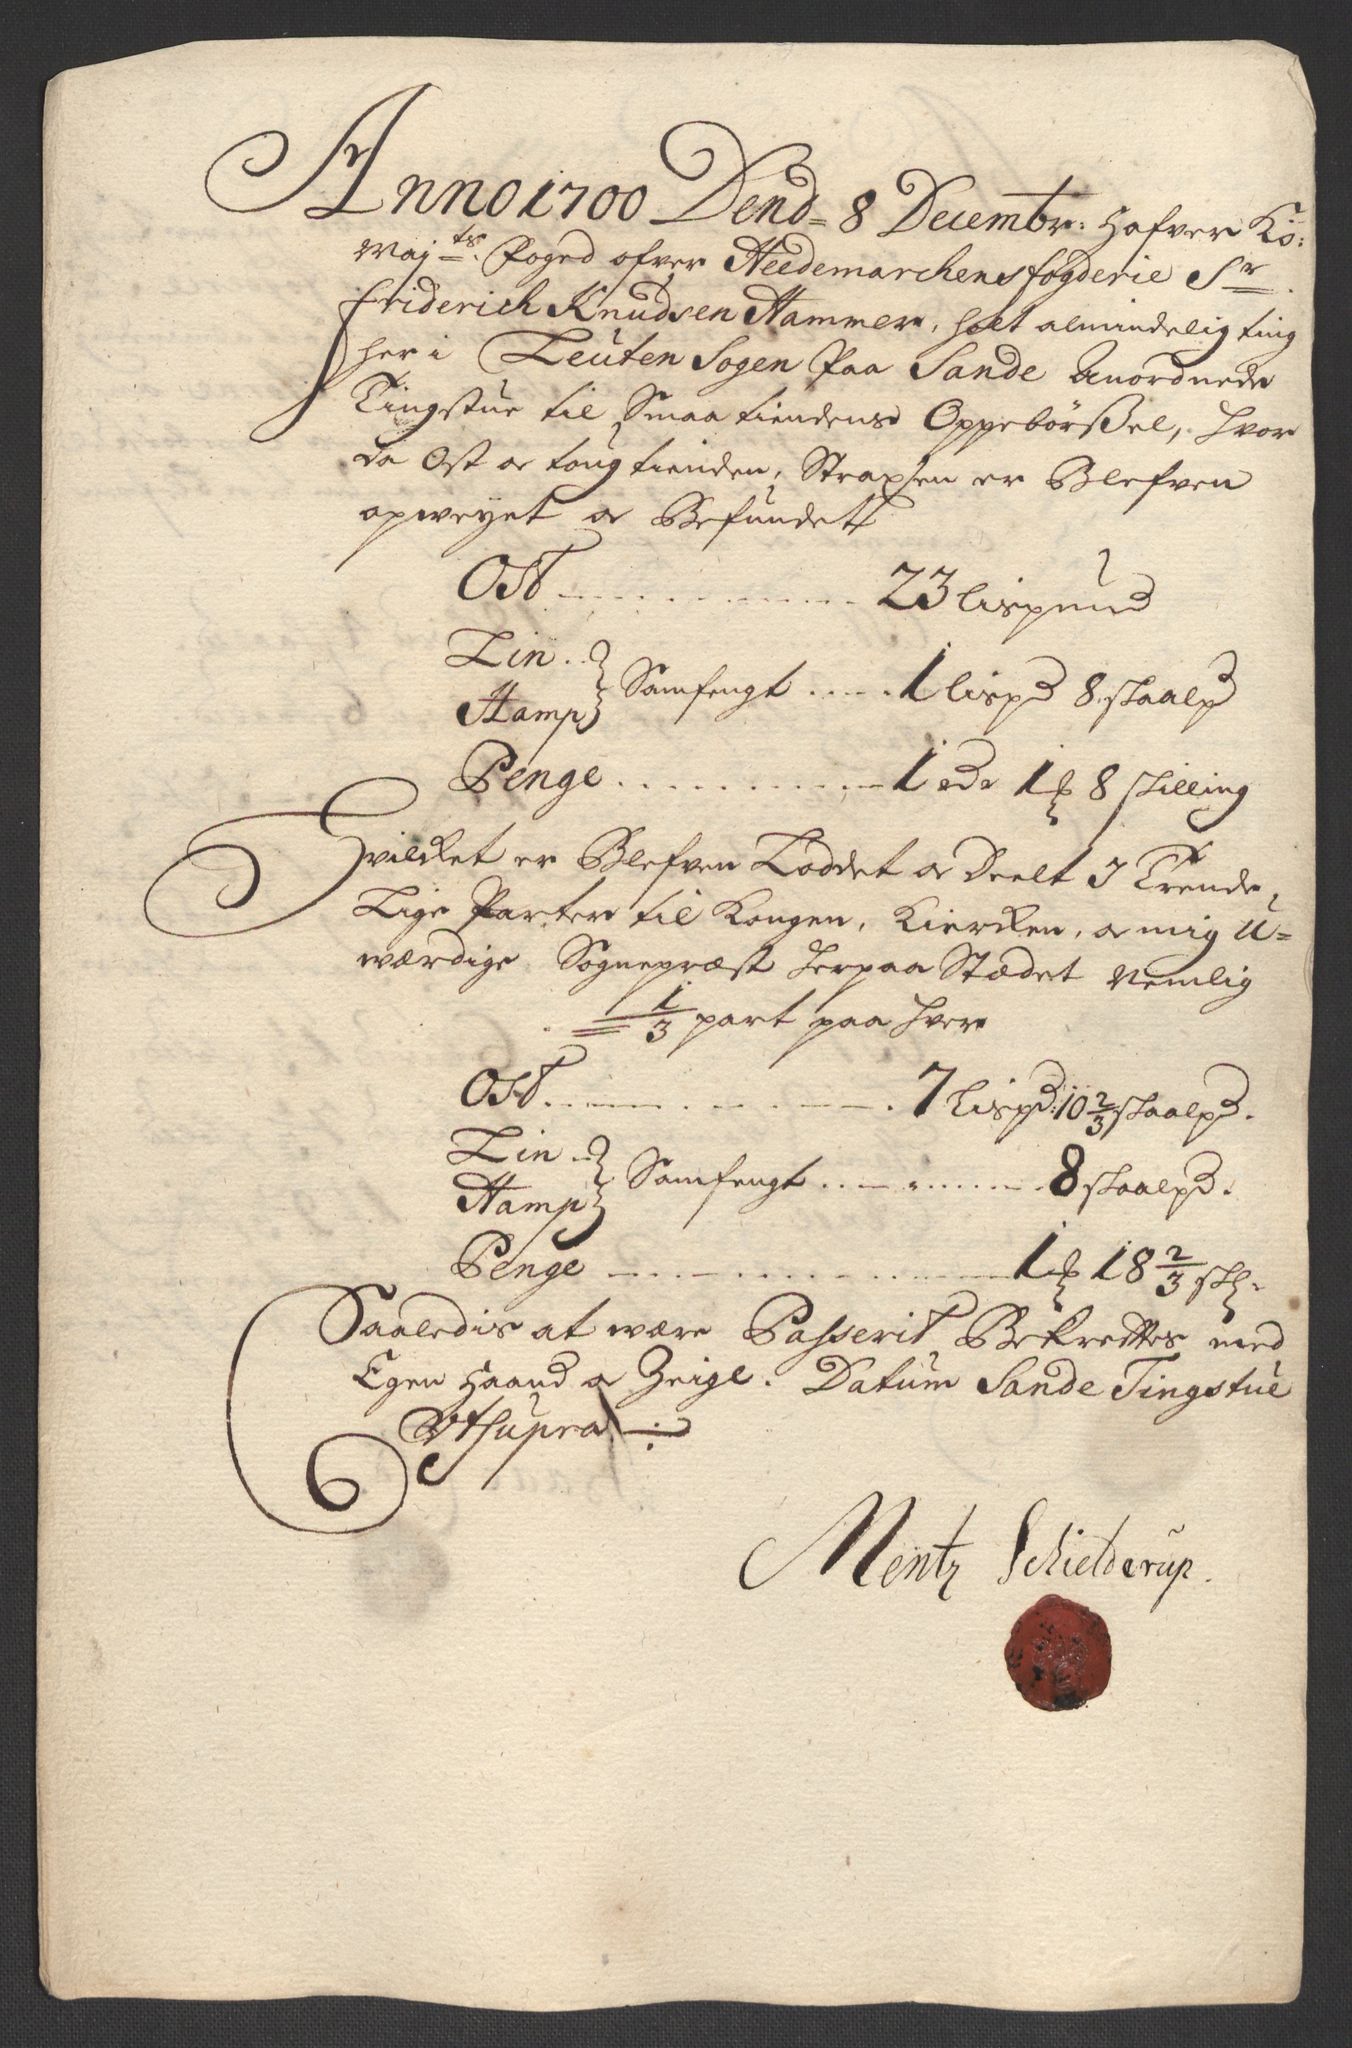 Anno 1700 Dend= 8 Decembr: Hafver Ko:
Maj.ts. Foged ofver Heedemarchens fogderie Sr.
Friderich Knudsen Hammer, holt almindelig ting
her i Leuten Sogen Paa Sande Anordnede
Tingstue til Smaa tiendens Oppebørßel, hvor
da Ost oc toug tienden, Strapsen er Blefven
opweyet oc Befundett
Ost ........... 23 lispund
Lin ..
Hamp } Samfengt ..... 1 lispd 8 skaalpd
Penge .......... 1 rdr 1 ß 8 skilling
Hvilcket er Blefven Loddet oc Deelt I Trende
Lige Parter til Kongen, Kiercken, oc mig U=
wærdige Sognepræst herpaa Stædet Nemlig
1/3 part paa hver
Ost ............ 7 Lispd: 10 2/3 skaalpd.
Lin ..
Hamp } Samfengt ......... 8 skaalpd.
Penge ............... 1 ß 18 2/3 sk.
Saaledis at være Passerit Bekreftes med
Egen Haand oc Zeigl. Datum Sande Tingstue
Vt supra
Mentz Schielderup.